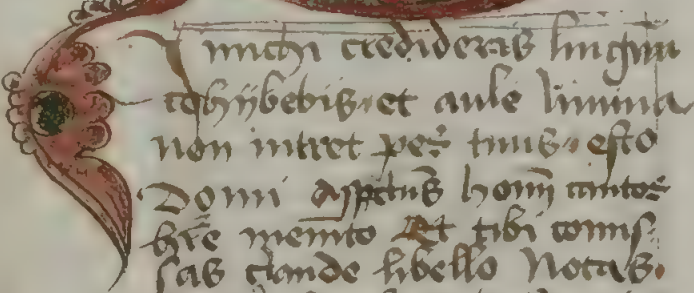 michi credideris linguā
cohijbebis. et aule limina
non intret pes tuus. esto
Domi aspctus hom̄ cautos
hr̄e memto Et tibi comis
sas claude libello Notas.